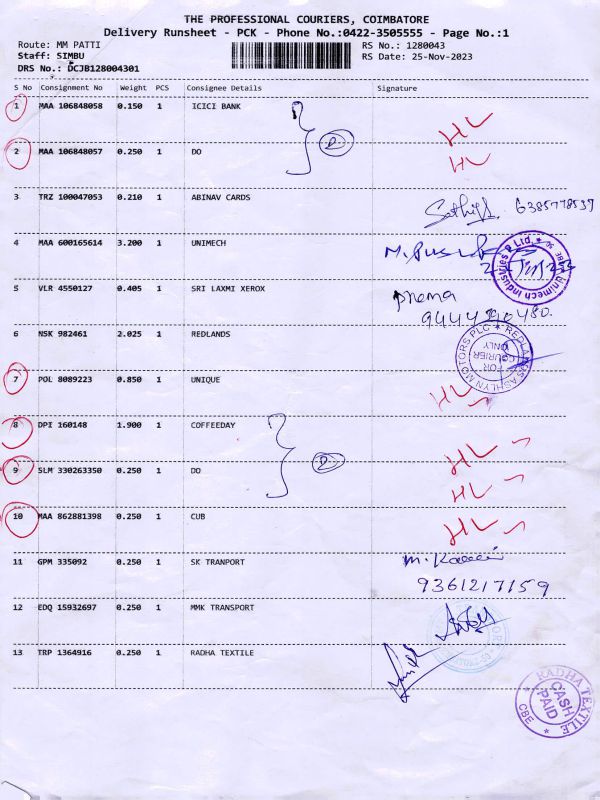 THE PROFESSIONAL COURIERS, COIMBATORE
Delivery Runsheet - PCK - Phone No.:0422-3505555 - Page No.:1
Route: MM PATTI RS No.: 1280043
Staff: SIMBU RS Date: 25-Nov-2023
DRS No.: DCJB128004301
S No Consignment No Weight PCS Consignee Details Signature
1 MAA 106848058 0.150 1 ICICI BANK HL
2 MAA 106848057 0.250 1 DO HL
3 TRZ 100047053 0.210 1 ABINAV CARDS 6385778537
4 MAA 600165614 3.200 1 UNIMECH
Unimech Industries P Ltd.
5 VLR 4550127 0.405 1 SRI LAXMI XEROX prema
9444290480.
6 NSK 982461 2.025 1 REDLANDS
REDLANDS ASHLYN MOTORS PLC
FOR
COURIER
ONLY
7 POL 8089223 0.850 1 UNIQUE HL
8 DPI 160148 1.900 1 COFFEEDAY HL
9 SLM 330263350 0.250 1 DO HL
10 MAA 862881398 0.250 1 CUB HL
11 GPM 335092 0.250 1 SK TRANPORT
9361217159
12 EDQ 15932697 0.250 1 MMK TRANSPORT
13 TRP 1364916 0.250 1 RADHA TEXTILE
RADHA TEXTILE
CASH
PAID
CBE